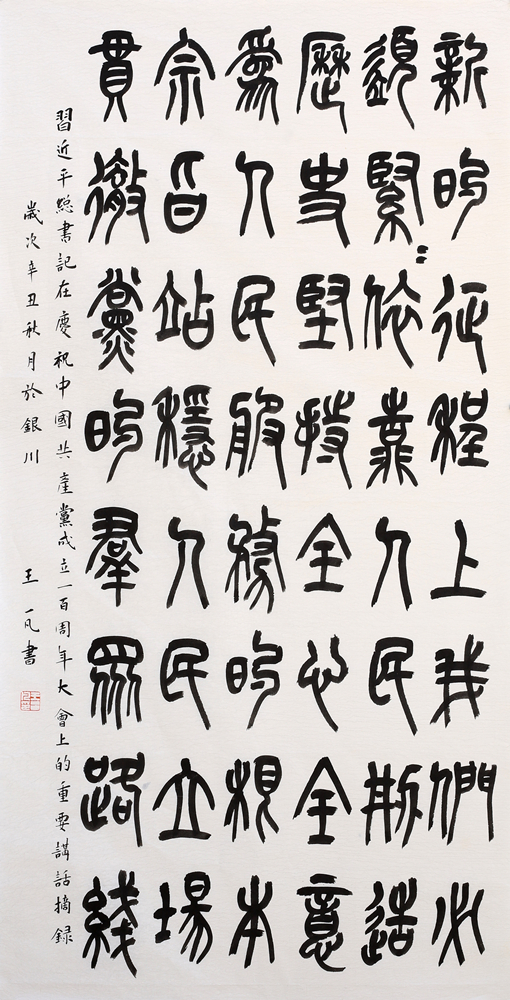 新的征程上我們必
須緊〻依靠人民創造
歷史堅持全心全意
為人民服務的根本
宗旨站穩人民立場
貫徹黨的羣眾路綫
習近平總書記在慶祝中國共產黨成立一百周年大會上的重要講話摘録
歲次辛丑秋月於銀川 王一凡書